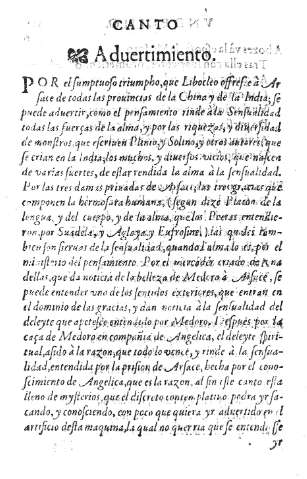 CANTO
Aduertimiento.
POR el sumptuoso triumpho, que Libocleo offresce à Ar
sace de todas las prouincias de la China y de la India; se
puede aduertir, como el pensamiento rinde à la Sensualidad
todas las fuerças de la alma, y por las riquezas, y diuersidad
de monstros, que escriuen Plinio, y Solino, y otros autores, que
se crian en la India; los muchos, y diuersos vicios, que nascen
de varias suertes, de estar rendida la alma à la sensualidad.
Por las tres damas priuadas de Arsace, las tres gracias que
componen la hermosura humana, (segun dize Platon) de la
lengua, y del cuerpo, y de la alma, que los Poetas entendie-
ron, por Suadela, y Aglaya, y Eufrosine, las quales tam
bien son sieruas de la sensualidad, quando l'alma lo es, por el
ministerio del pensamiento. Por el mercader criado de
dellas, que da noticia de la belleza de Medoro à Arsace, se
puede entender vno de los sentidos exteriores, que entran en
el dominio de las gracias, y dan noticia à la sensualidad del
deleyte que apetesce entendido por Medoro. Despues por la
caça de Medoro en compañia de Angelica, el deleyte spiri-
tual, asido à la razon, que todo lo vence, y rinde à la sensua-
lidad, entendida por la prision de Arsace, hecha por el conos-
cimiento de Angelica, que es la razon, al fin este canto està
lleno de mysterios, que el discreto contemplatiuo podra yr sa-
cando, y conosciendo, con poco que quiera yr aduertido en el
artificio desta maquina, la qual no querria que se entendiesse